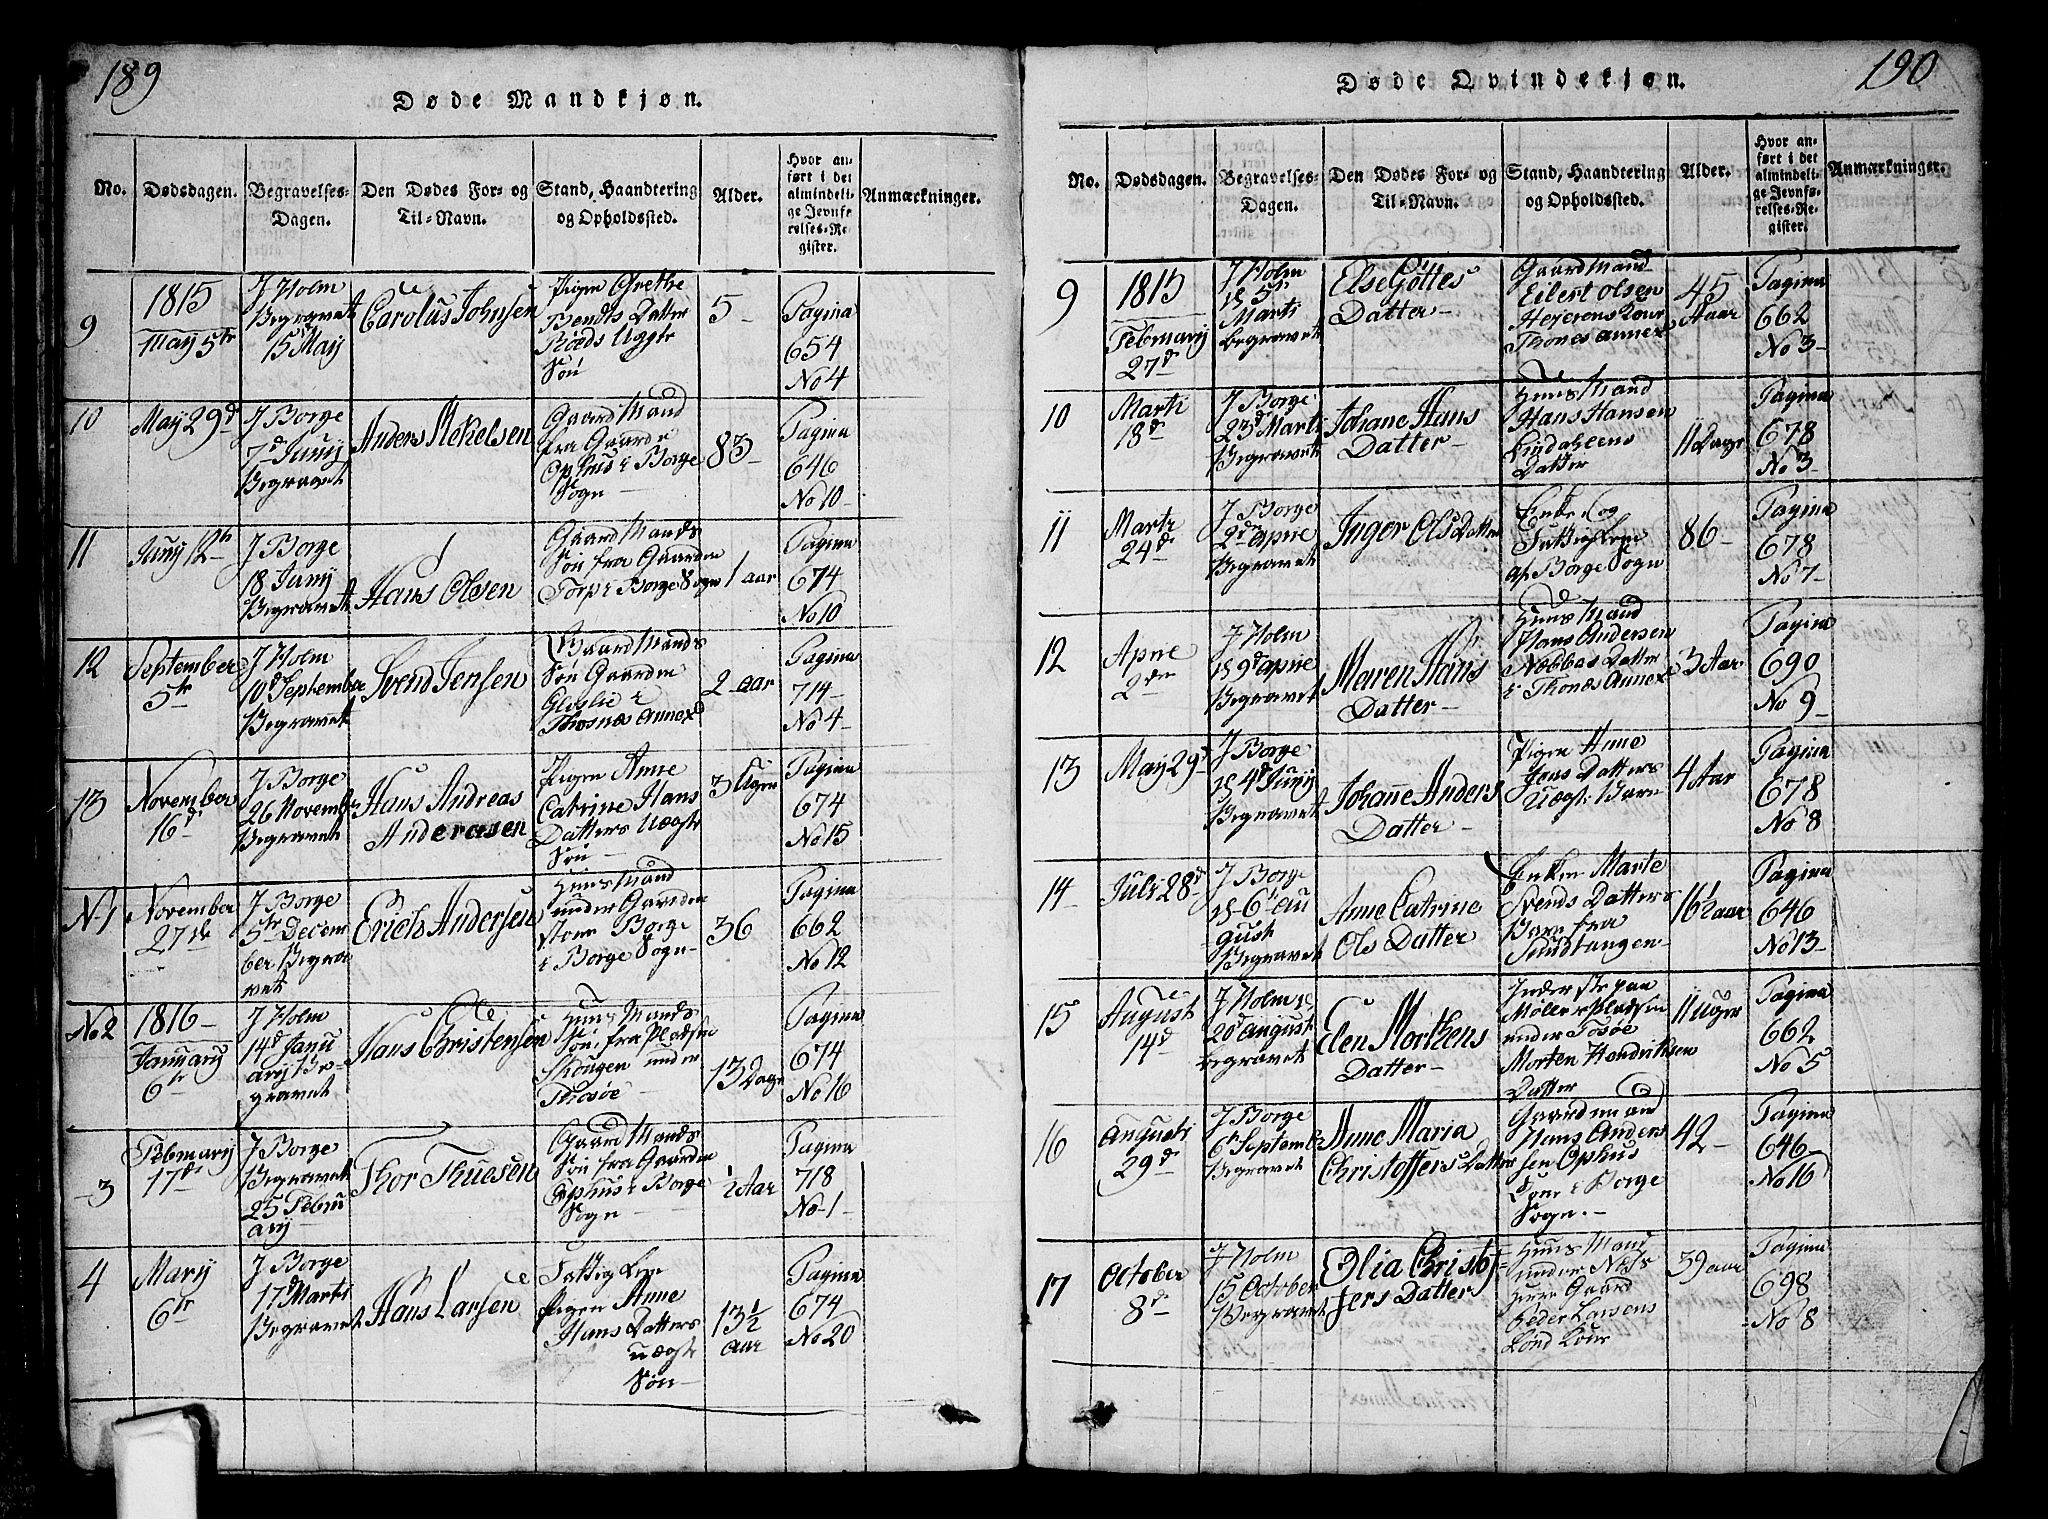 189
Døde Mandkjøn.
No.
Dødsdagen.
Begravelses-
Dagen.
Den Dødes For- og
Til-Navn.
Stand, Haandtering
og Opholdssted.
Alder.
Hvor an-
ført i det
almindeli-
ge Jevnfø-
relses-Re-
gister.
Anmærkninger.
9
1815
May 5te
J Holm
Begravet
15 May
Carolus Johnsen
Pigen Grethe
Bendts Datter
Røeds Uægte
Søn
5
Pagina
654
No 4
10
May 29d
J Borge
7d Juny
Begravet
Anders Mekelsen
Gaard Mand
fra Gaarde
Ophus i Borge
Sogn
83
Pagina
646
No 10
11
Juny 12th
J Borge
18 Juny
Begravet
Hans Olsen
Gaard Mands
Søn fra Gaarden
Torp i Borge Sogn
1 aar
Pagina
674
No 10
12
September
5te
J Holm
10d September
Begravet
Svend Jensen
Gaard Mands
Søn Gaarden
Gloslie i
Thosnæs Annex
2 aar
Pagina
714
No 4
13
November
16d
J Borge
26 November
Begravet
Hans Andreas
Anderasen
Pigen Anne
Catrine Hans
Datters Uægte
Søn
3 Ugen
Pagina
674
No 15
No 1
November
27de
J Borge
5te Decem
ber Begra
vet
Erich Andersen
Huus Mand
under Gaarden
store Borge
i Borge Sogn
36
Pagina
662
No 12
No 2
1816
January
6te
J Holm
14d Janu
ary Be-
gravet
Hans Christensen
Huus Mands
Søn fra Pladsen
Skougen under
Thosøe
13 Dage
Pagina
674
No 16
3
Februarij
17de
J Borge
Begravet
25 Febru
arij
Thor Thuesen
Gaard Mands
Søn fra Gaarden
Ophus i Borge
Sogn
½ Aar
Pagina
718
No 1
4
Marij
6te
J Borge
17d Marti
Begravet
Hans Larsen
Fattig Lem
Pigen Anne
Hans Datters
uægte
Søn
13½
aar
Pagina
674
No 20
190
Døde Qvindekjøn.
No.
Dødsdagen.
Begravelses-
Dagen.
Den Dødes For- og
Til-Navn.
Stand, Haandtering
og Opholdssted.
Alder.
Hvor an-
ført i det
almindeli-
ge Jevnfø-
relses-Re-
gister.
Anmærkninger.
9
1815
Februarij
27d
J Holm
d 5te
Marti
begravet
Else Gøttes
Datter
Gaard Mand
Eilert Olsen
Hejerens Kone
Thones Annex
45
Aar
Pagina
662
No 3
10
Marti
18d
J Borge
23d Marti
Begravet
Johane Hans
Datter
Huus Mand
Hans Hansen
Lindahlens
Datter
11 Dage
Pagina
678
No 3
11
Marti
24d
J Borge
2d Aprie
Begravet
Inger Ols Datter
Enke og
Fattig Lem
af Borge Sogn
86
Pagina
678
No 7
12
Aprie
2den
J Holm
d 9d Aprie
Begravet
Maren Hans
Datter
Huus Mand
Hans Andersen
Nabbas Datter
i Thonæs Annex
3 Aar
Pagina
690
No 9
13
May 29d
J Borge
d 4d Juny
Begravet
Johanne Anders
Datter
Pigen Anne
Jans Datters
Uægte Barn
4 Aar
Pagina
678
No 8
14
Juli 28d
J Borge
d 6te Au
gust
Begravet
Anne Catrine
Ols Datter
Enken Marte
Svends Datters
Barn fra
Sundtangen
16½ aar
Pagina
646
No 13
15
August
14d
J Holm
20d august
begravet
Elen Morthens
Datter
Inderste paa
Møller Pladsen
under Tosøe
Morten Hendriksen
Datter
11 Uger
Pagina
662
No 5
16
Augusti
29d
J Borge
6te Septemb
Begravet
Anne Maria
Christoffers Datter
Gaardmand
Hans Anders
sen Ophus
Kone i Borge
Sogn.
42
Pagina
646
No 16
17
October
8d
J Holm
15 October
Begravet
Olia Christof
fers Datter
Huus Mand
under Næs
Herre Gaard
Peder Larsens
39 aar
Pagina
698
No 8